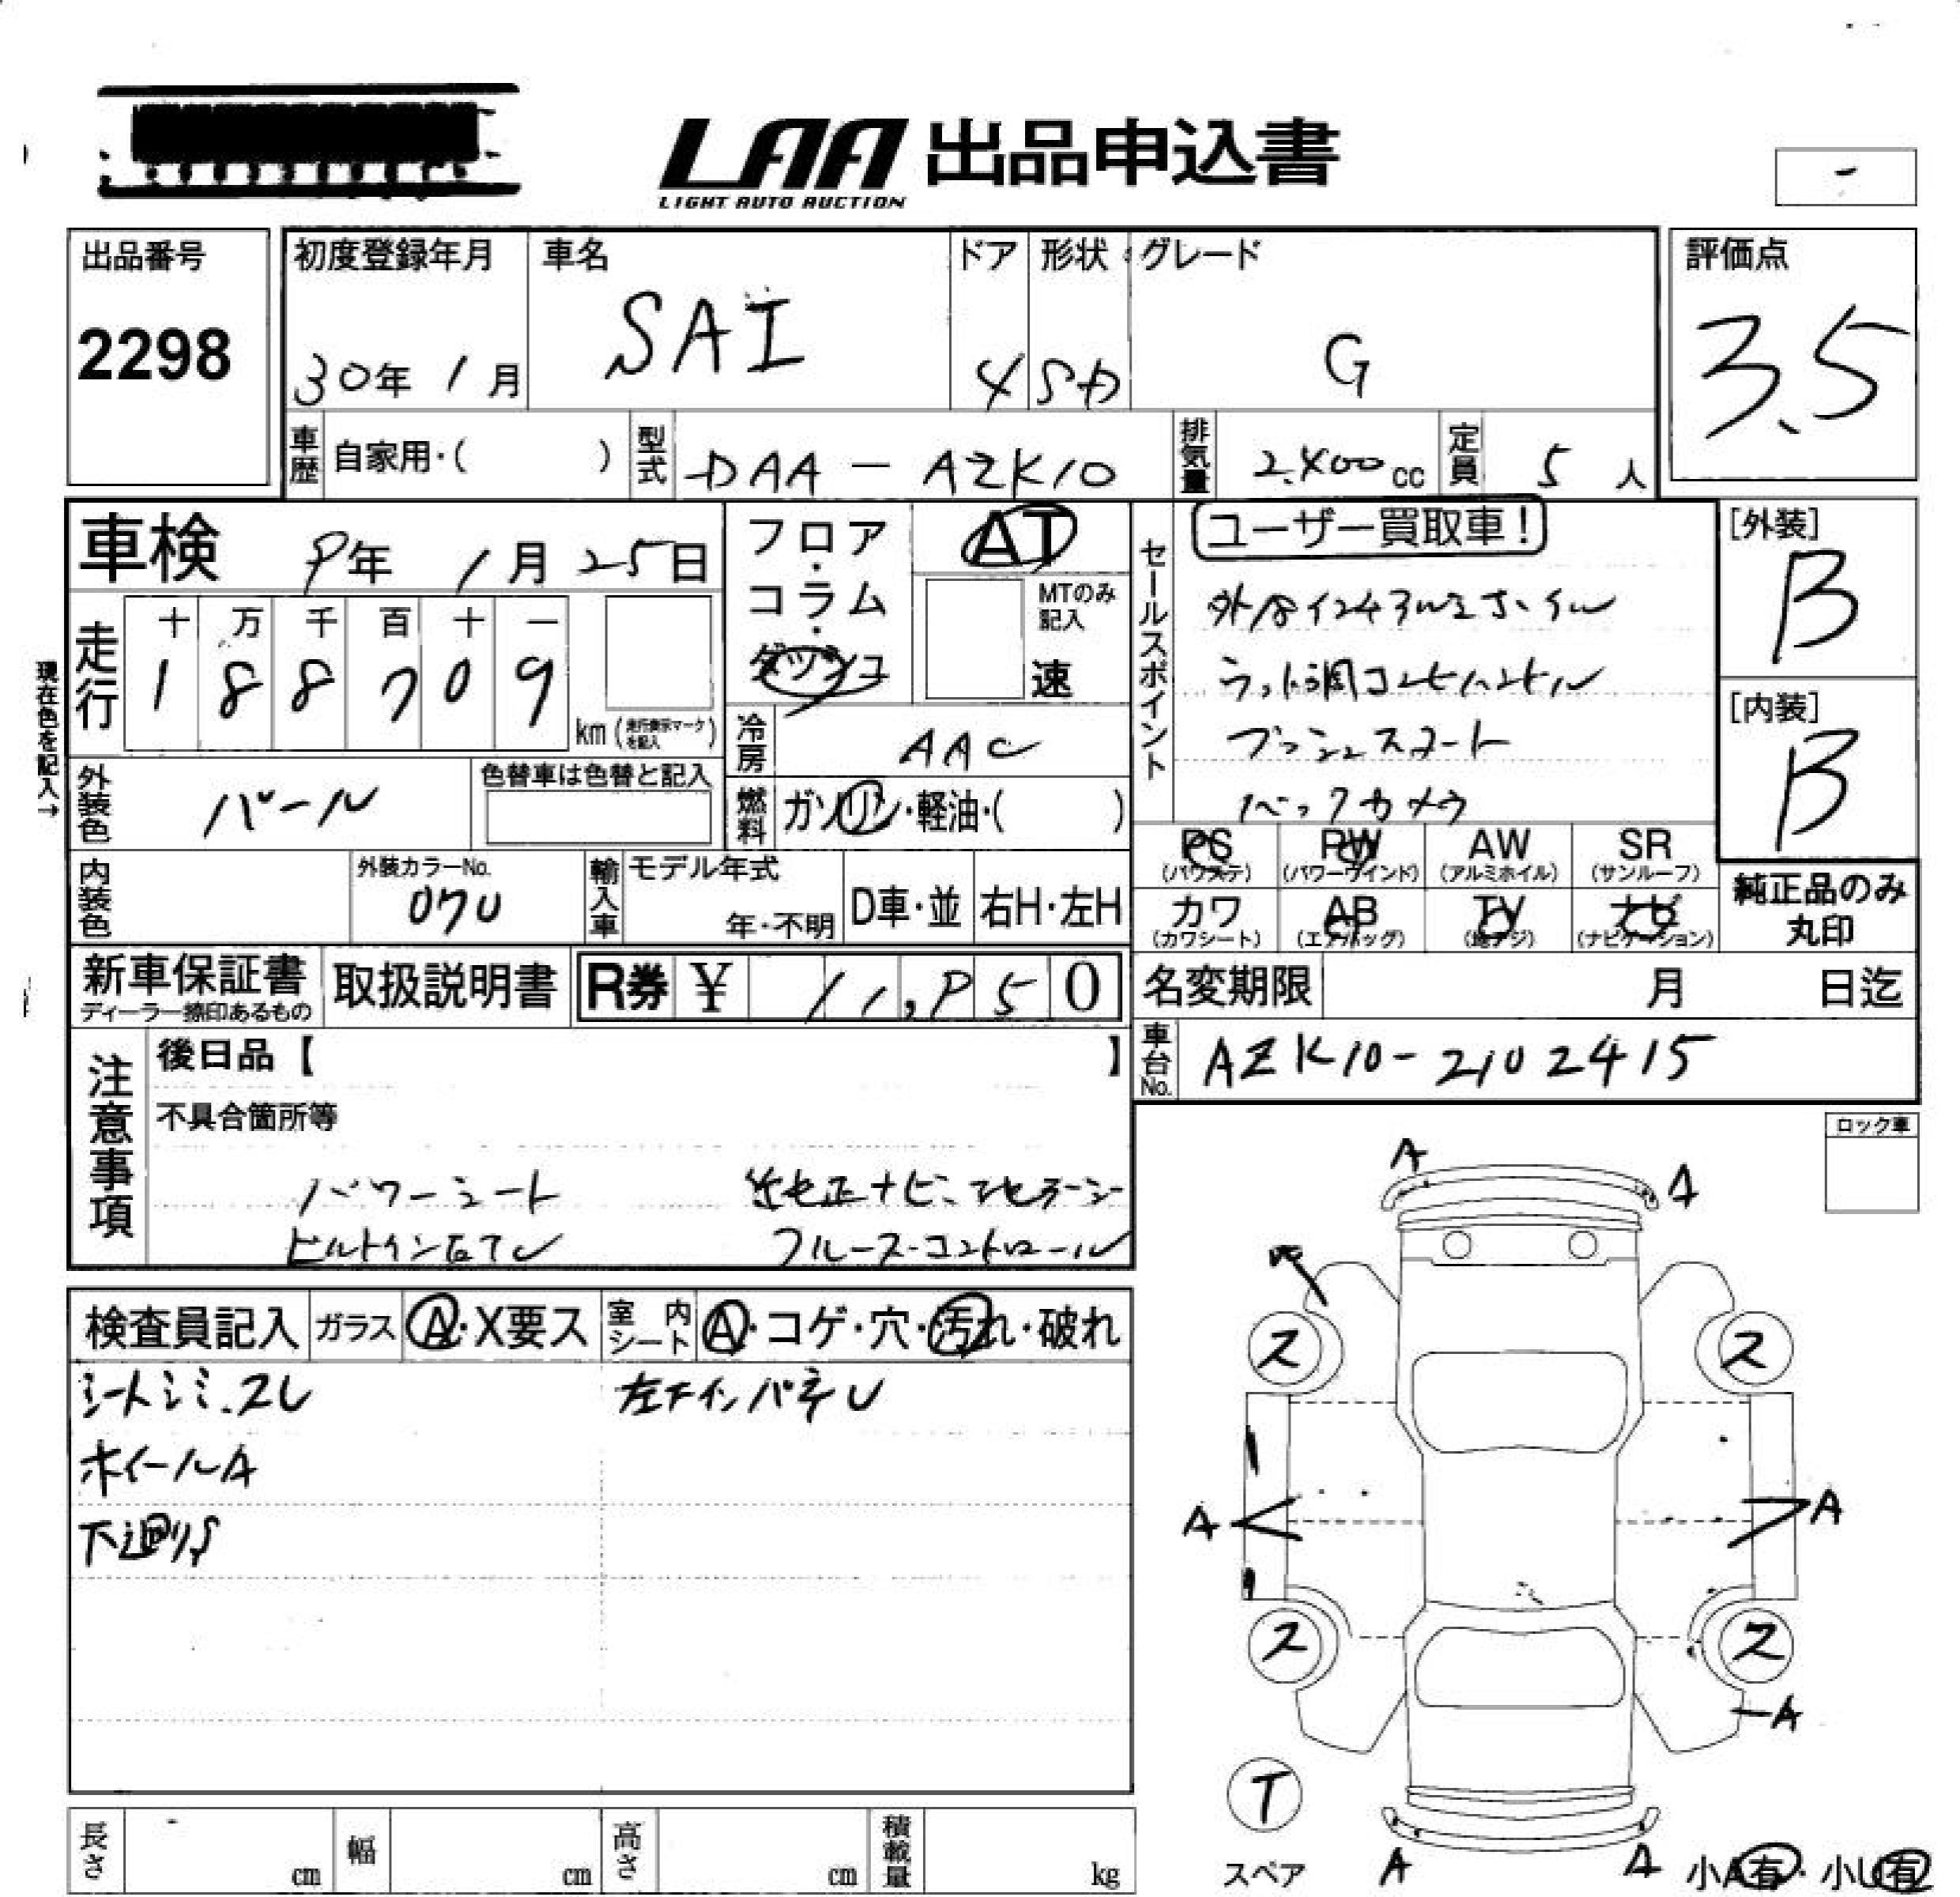 LAA 出品申込書
LIGHT AUTO AUCTION
出品番号
2298
初度登録年月
30年 1月
車名
SAI
ドア
4
形状
SD
グレード
G
評価点
3.5
車歴 自家用・( )
型式 DAA-AZK10
排気量 2,400cc
定員 5人
車検 9年 1月 25日
走行
十 万 千 百 十 一
1 8 8 7 0 9
km (走行表示マークを記入)
現在色を記入→
外装色 パール
色替車は色替と記入
内装色
外装カラーNo.
070
輸入車
モデル年式
年・不明
D車・並
右H・左H
フロア・コラム・ダッシュ
AT
MTのみ記入
速
冷房 AAC
燃料 ガソリン・軽油・( )
セールスポイント
ユーザー買取車!
ウッド調コンビハンドル
プッシュスタート
バックカメラ
[外装]
B
[内装]
B
PS (パワステ)
PW (パワーウインド)
AW (アルミホイル)
SR (サンルーフ)
カワ (カワシート)
AB (エアバッグ)
TV (地デジ)
ナビ (ナビゲーション)
純正品のみ丸印
新車保証書
ディーラー捺印あるもの
取扱説明書
R券 ¥ 11,950
名変期限 月 日迄
車台No. AZK10-2102415
注意事項
後日品【 】
不具合箇所等
パワーシート
ビルトインETC
クルーズコントロール
ロック車
検査員記入
ガラス A・X要ス
室内シート A・コゲ・穴・汚れ・破れ
シートシミ.スレ
左下インパネU
ホイールA
下廻りS
A
A
ス
ス
A
A
ス
ス
A
T
スペア
A
A
小A有・小U有
長さ cm
幅 cm
高さ cm
積載量 kg